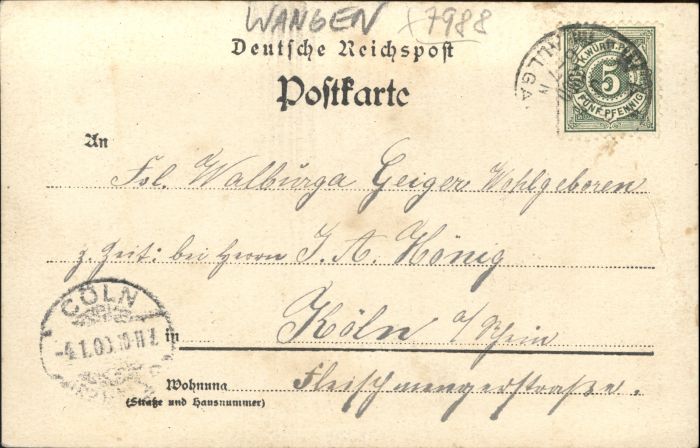 WANGEN x7988
Deutsche Reichspost
Postkarte
K. WÜRTT. P
5
FÜNF PFENNIG
An
Frl. Walburga Geiger Wohlgeboren
z. Zeit: bei Herrn J. A. König
in Köln a/Rhein
CÖLN
-4.1.00
Wohnung
(Straße und Hausnummer)
Fleischmengerstraße.